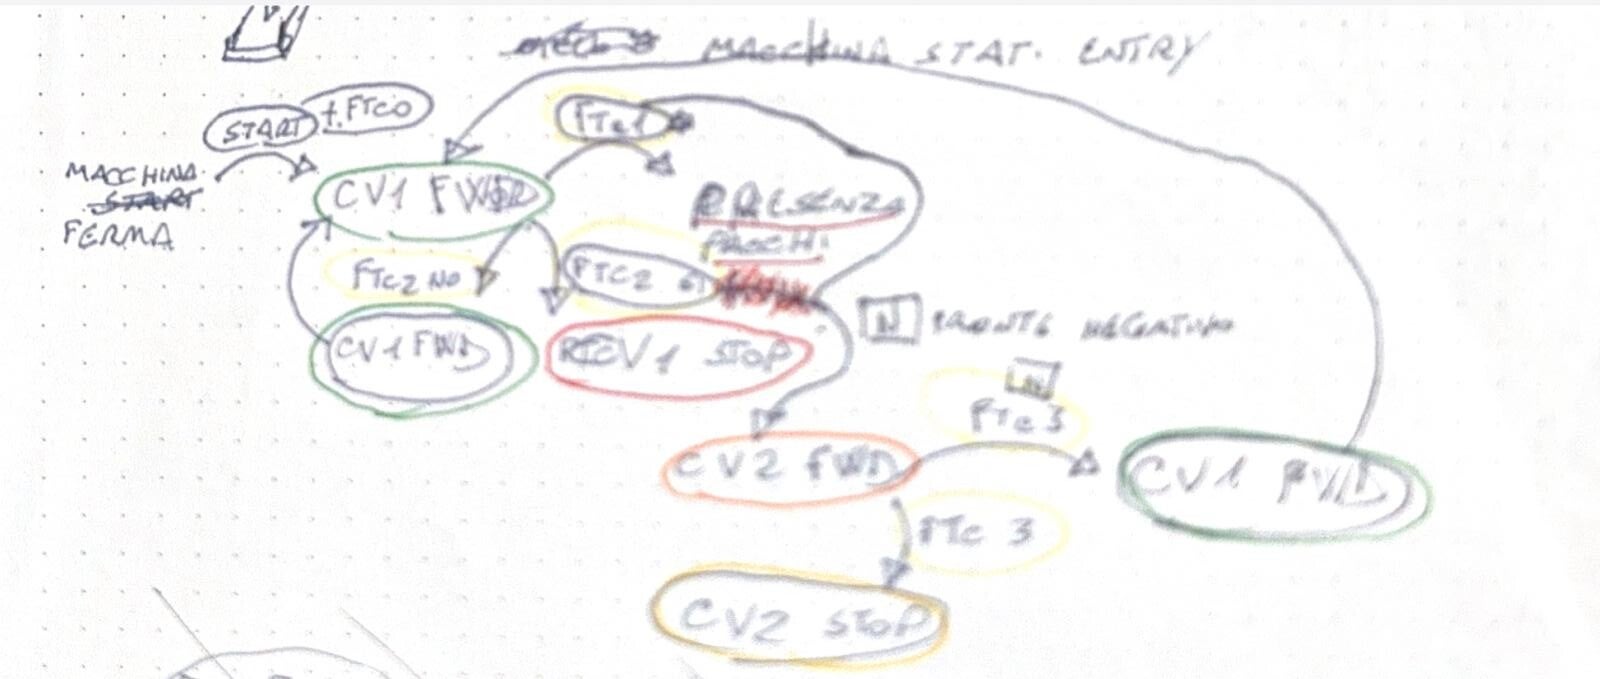 MACCHINA STAT. ENTRY
START + FTC0
MACCHINA
START
FERMA
CV1 FWD
FTC1
PRESENZA
PACCHI
FTC2 NO
FTC2 SI
CV1 FWD
CV1 STOP
N FRONTE NEGATIVO
N
FTC3
CV2 FWD
CV1 FWD
FTC 3
CV2 STOP